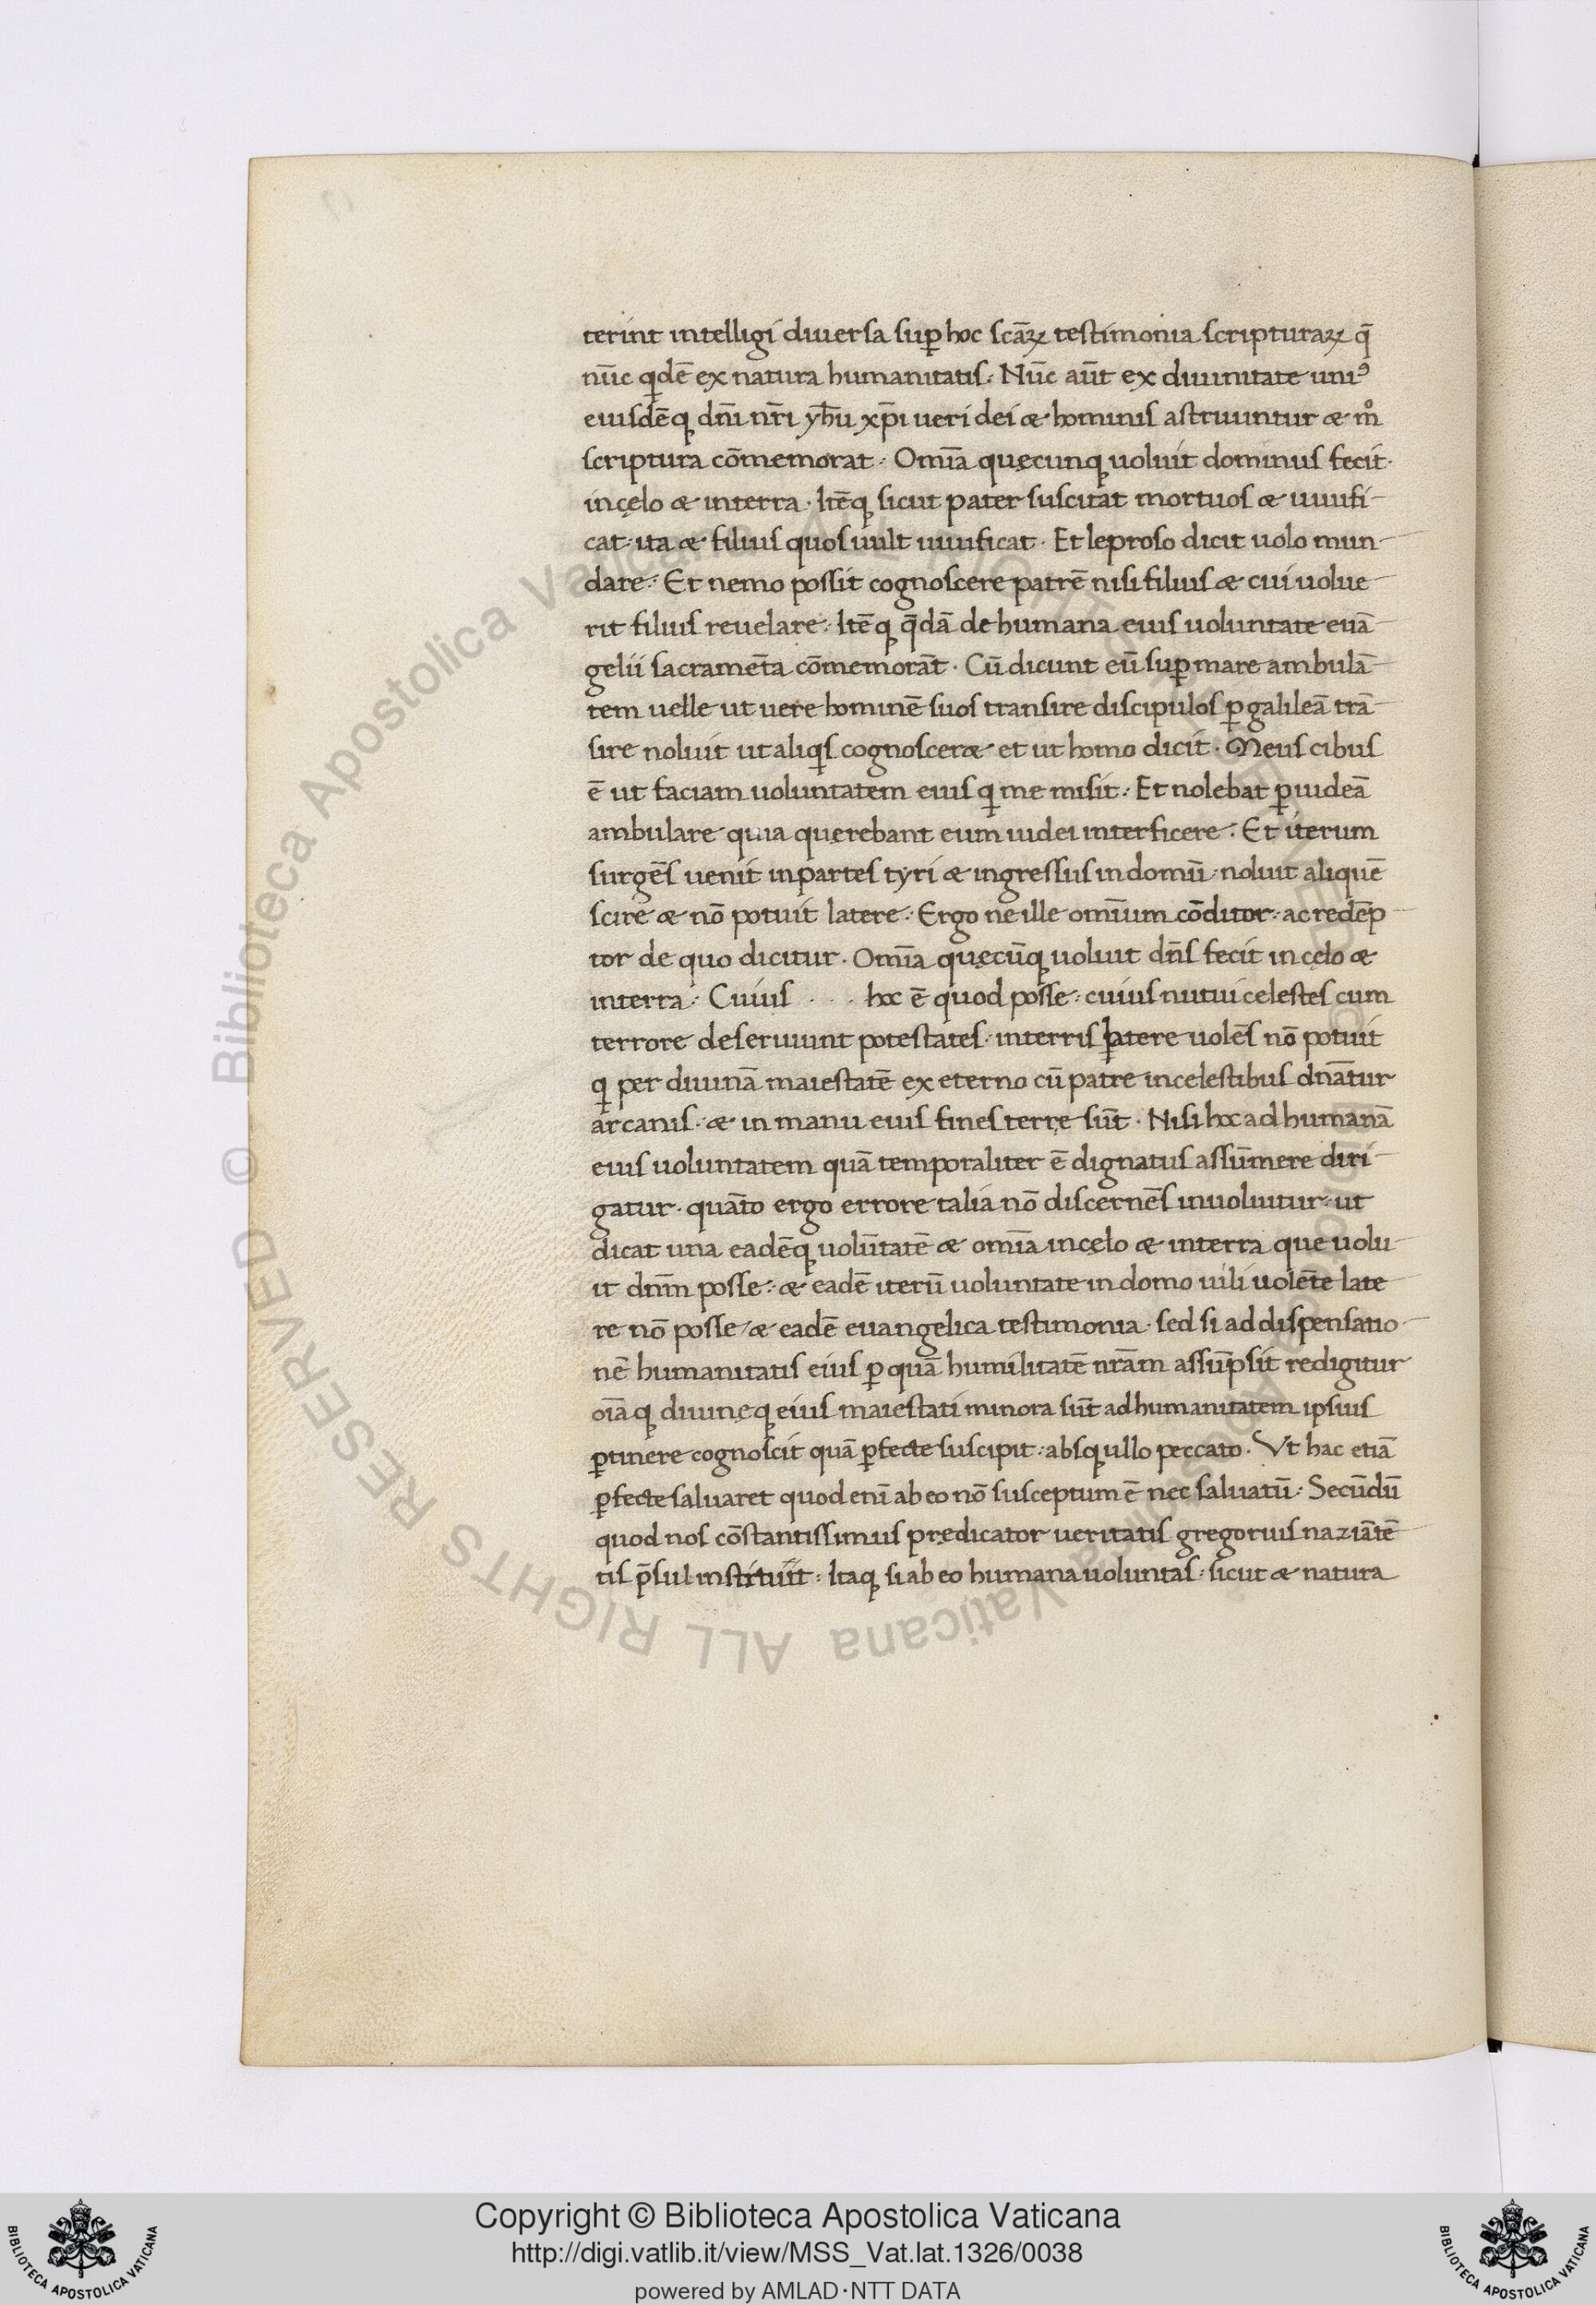 terint intelligi diuersa sup̱ hoc scāꝝ testimonia scripturaꝝ q̄
nūc qdē ex natura humanitatis. Nūc aūt ex diuinitate uniꝰ
eiusdēq; dn̄i nr̄i yh̄u xp̄i ueri dei & hominis astruuntur & mͦ
scriptura cōmemorat. Omīa quęcunq; uoluit dominus fecit.
incęlo & interra. Itēq; sicut pater suscitat mortuos & uiuifi-
cat. ita & filius quos uult uiuificat. Et leproso dicit uolo mun-
dare. Et nemo possit cognoscere patrē nisi filius & cui uolue-
rit filius reuelare. Itēq; q̄dā de humana eius uoluntate euā-
gelii sacramēta cōmemorāt. Cū dicunt eū sup̱ mare ambulā-
tem uelle ut uere hominē suos transire discipulos ꝑ galileā trā-
sire noluit ut aliqis cognoscer& et ut homo dicit. Meus cibus
ē ut faciam uoluntatem eius qi me misit. Et nolebat ꝑ iudeā
ambulare quia quęrebant eum iudei interficere. Et iterum
surgēs uenit inpartes tyri & ingressus in domū. noluit aliquē
scire & nō potuit latere. Ergo ne ille omīum cōditor. ac redēp-
tor de quo dicitur. Omīa quęcūq; uoluit dn̄s fecit in cęlo &
interra. Cuius . . . hoc ē quod posse. cuius nutui celestes cum
terrore deseruiunt potestates. interris latere uolēs nō potuit
qi per diuinā maiestatē ex eterno cū patre incelestibus dn̄atur
arcanis. & in manu eius fines terrę sūt. Nisi hoc ad humanā
eius uoluntatem quā temporaliter ē dignatus assūmere diri-
gatur. quāto ergo errore talia nō discernēs inuoluitur. ut
dicat una eadēq; volūtatē & omīa incęlo & interra que uolu-
it dn̄m posse. & eadē iterū uoluntate in domo uili uolēte late-
re nō posse & eadē euangelica testimonia. sed si ad dispensatio-
nē humanitatis eius ꝑ quā humilitatē nr̄am assūpsit redigitur
oīaq; diuinęq; eius maiestati minora sūt ad humanitatem ipsius
ꝑtinere cognoscit quā ꝑfecte suscipit. absq; ullo peccato. Vt hac etiā
ꝑfecte saluaret quod enī ab eo nō susceptum ē nec saluatū. Secūdū
quod nos cōstantissimus prędicator ueritatis gregorius naziātē-
tis p̄sul instituit. Itaq; si ab eo humana uoluntas. sicut & natura
© Biblioteca Apostolica Vaticana ALL RIGHTS RESERVED
Copyright © Biblioteca Apostolica Vaticana
http://digi.vatlib.it/view/MSS_Vat.lat.1326/0038
powered by AMLAD·NTT DATA
BIBLIOTECA APOSTOLICA VATICANA
BIBLIOTECA APOSTOLICA VATICANA